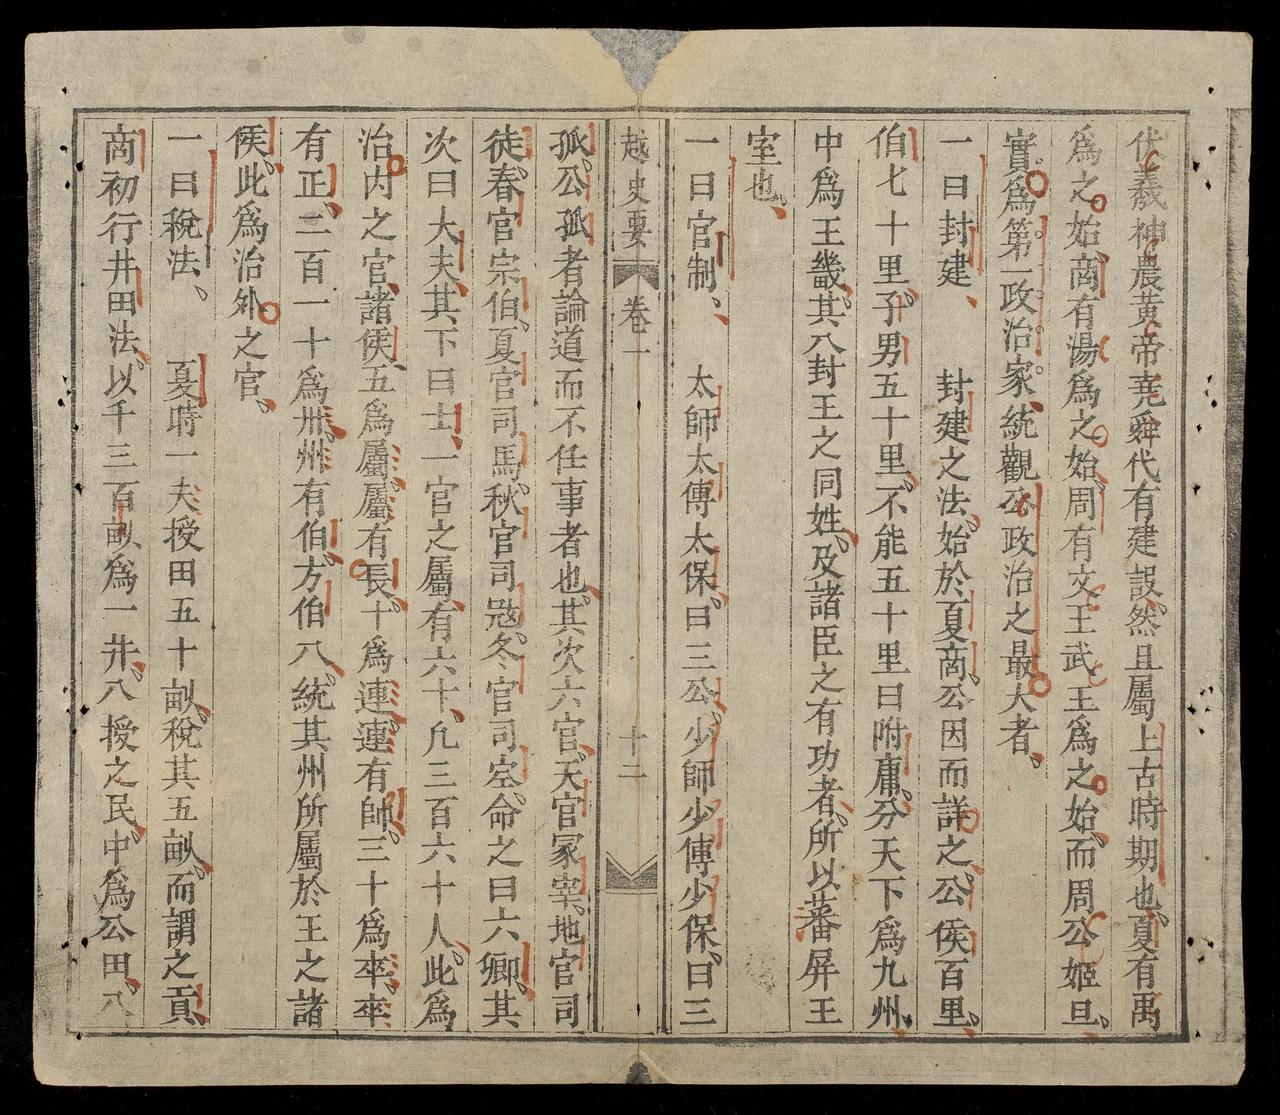 伏羲神農黃帝堯舜代有建設、然且屬上古時期也、夏有禹
爲之始、商有湯爲之始、周有文王武王爲之始、而周公姬旦、
實爲第一政治家、統觀公政治之最大者、
一曰封建、 封建之法、始於夏商、公因而詳之、公侯百里、
伯七十里、子男五十里、不能五十里曰附庸、分天下爲九州、
中爲王畿、其八封王之同姓、及諸臣之有功者、所以蕃屏王
室也、
一曰官制、 太師太傅太保、曰三公、少師少傅少保、曰三
越史要 卷一 十二
孤、公孤者論道而不任事者也、其次六官、天官冢宰、地官司
徒、春官宗伯、夏官司馬、秋官司寇、冬官司空、命之曰六卿、其
次曰大夫、其下曰士、一官之屬、有六十、凡三百六十人、此爲
治内之官、諸侯五爲屬、屬有長、十爲連、連有帥、三十爲卒、卒
有正、二百一十爲州、州有伯、方伯八、統其州所屬於王之諸
侯、此爲治外之官、
一曰稅法、 夏時一夫授田五十畝、稅其五畝、而謂之貢、
商初行井田法、以千三百畝爲一井、八授之民、中爲公田、八